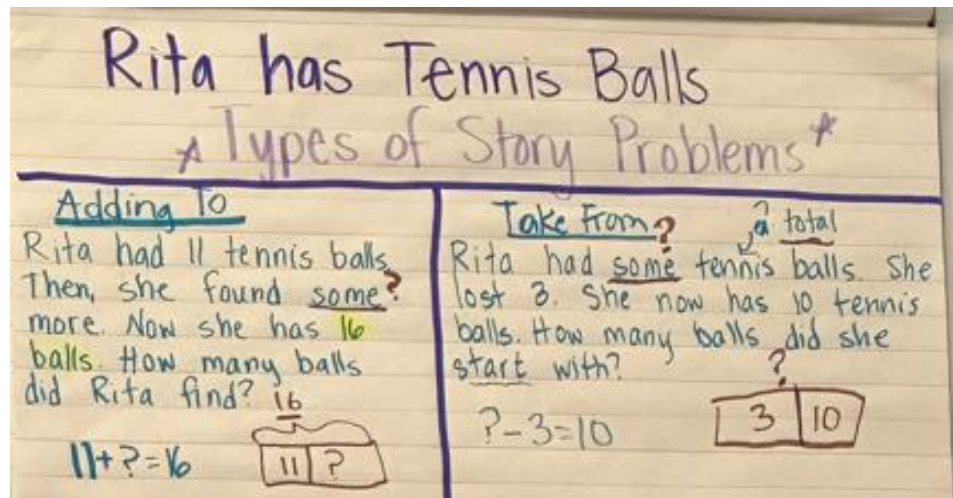 Rita has Tennis Balls
*Types of Story Problems*
Adding To
Rita had 11 tennis balls.
Then, she found some?
more. Now she has 16
balls. How many balls
did Rita find?
16
11+?=16
11 ?
Take From
? a total
Rita had some tennis balls. She
lost 3. She now has 10 tennis
balls. How many balls did she
start with?
?
?-3=10
3 10